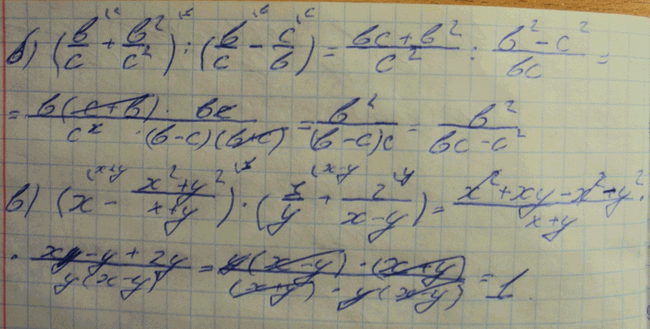 б) (b/c + b²/c²) : (b/c − c/b) = (bc + b²)/c² : (b² − c²)/bc =
= b(c+b) · bc / c² · (b−c)(b+c) = b²/(b−c)c = b²/bc−c²
в) (x − (x²+y²)/(x+y)) · (x/y + 2y/(x−y)) = (x²+xy−x²−y²)/(x+y) ·
· (xy−y+2y)/y(x−y) = y(x−y)·(x+y)/(x+y)·y(x−y) = 1.